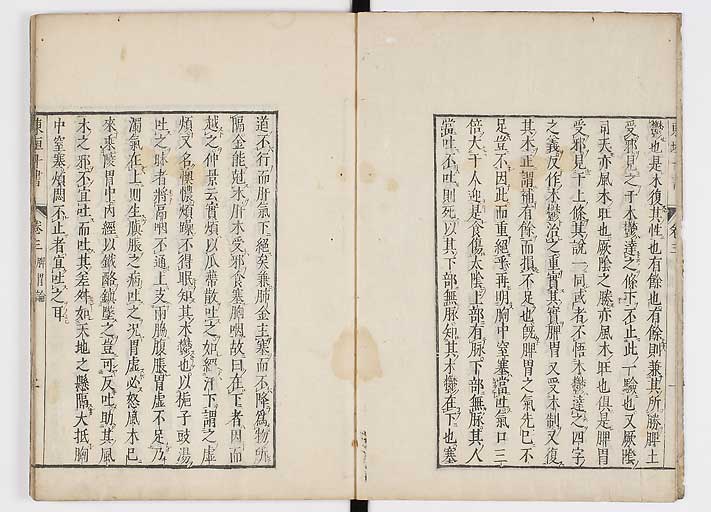 鬱也是木復其性也有餘也有餘則兼其所勝脾土
受邪見之于木鬱達之條下不止此一驗也又厥陰
司天亦風木旺也厥陰之勝亦風木旺也俱是脾胃
受邪見于上條其說一同或者不悟木鬱達之四字
之義反作木鬱治之重實其實脾胃又受木制又復
其木正謂補有餘而損不足也既脾胃之氣先已不
足豈不因此而重絕乎再明胸中窒塞當吐氣口三
倍大于人迎是食傷太陰上部有脉下部無脉其人
當吐不吐則死以其下部無脉知其木鬱在下也塞
道不行而肝氣下絕矣兼肺金主塞而不降爲物所
隔金能尅木肝木受邪食塞胸咽故曰在下者因而
越之仲景云實煩以瓜蒂散吐之如經汗下謂之虛
煩又名懊憹煩躁不得眠知其木鬱也以梔子豉湯
吐之昧者將膈咽不通上支兩脇腹脹胃虛不足乃
濁氣在上則生䐜脹之病吐之況胃虛必怒風木已
來乘陵胃中內經以鐵酪鎮墜之豈可反吐助其風
木之邪不宜吐而吐其差舛如天地之懸隔大抵胸
中窒塞煩悶不止者宜吐之耳
東垣十書
卷三
脾胃論